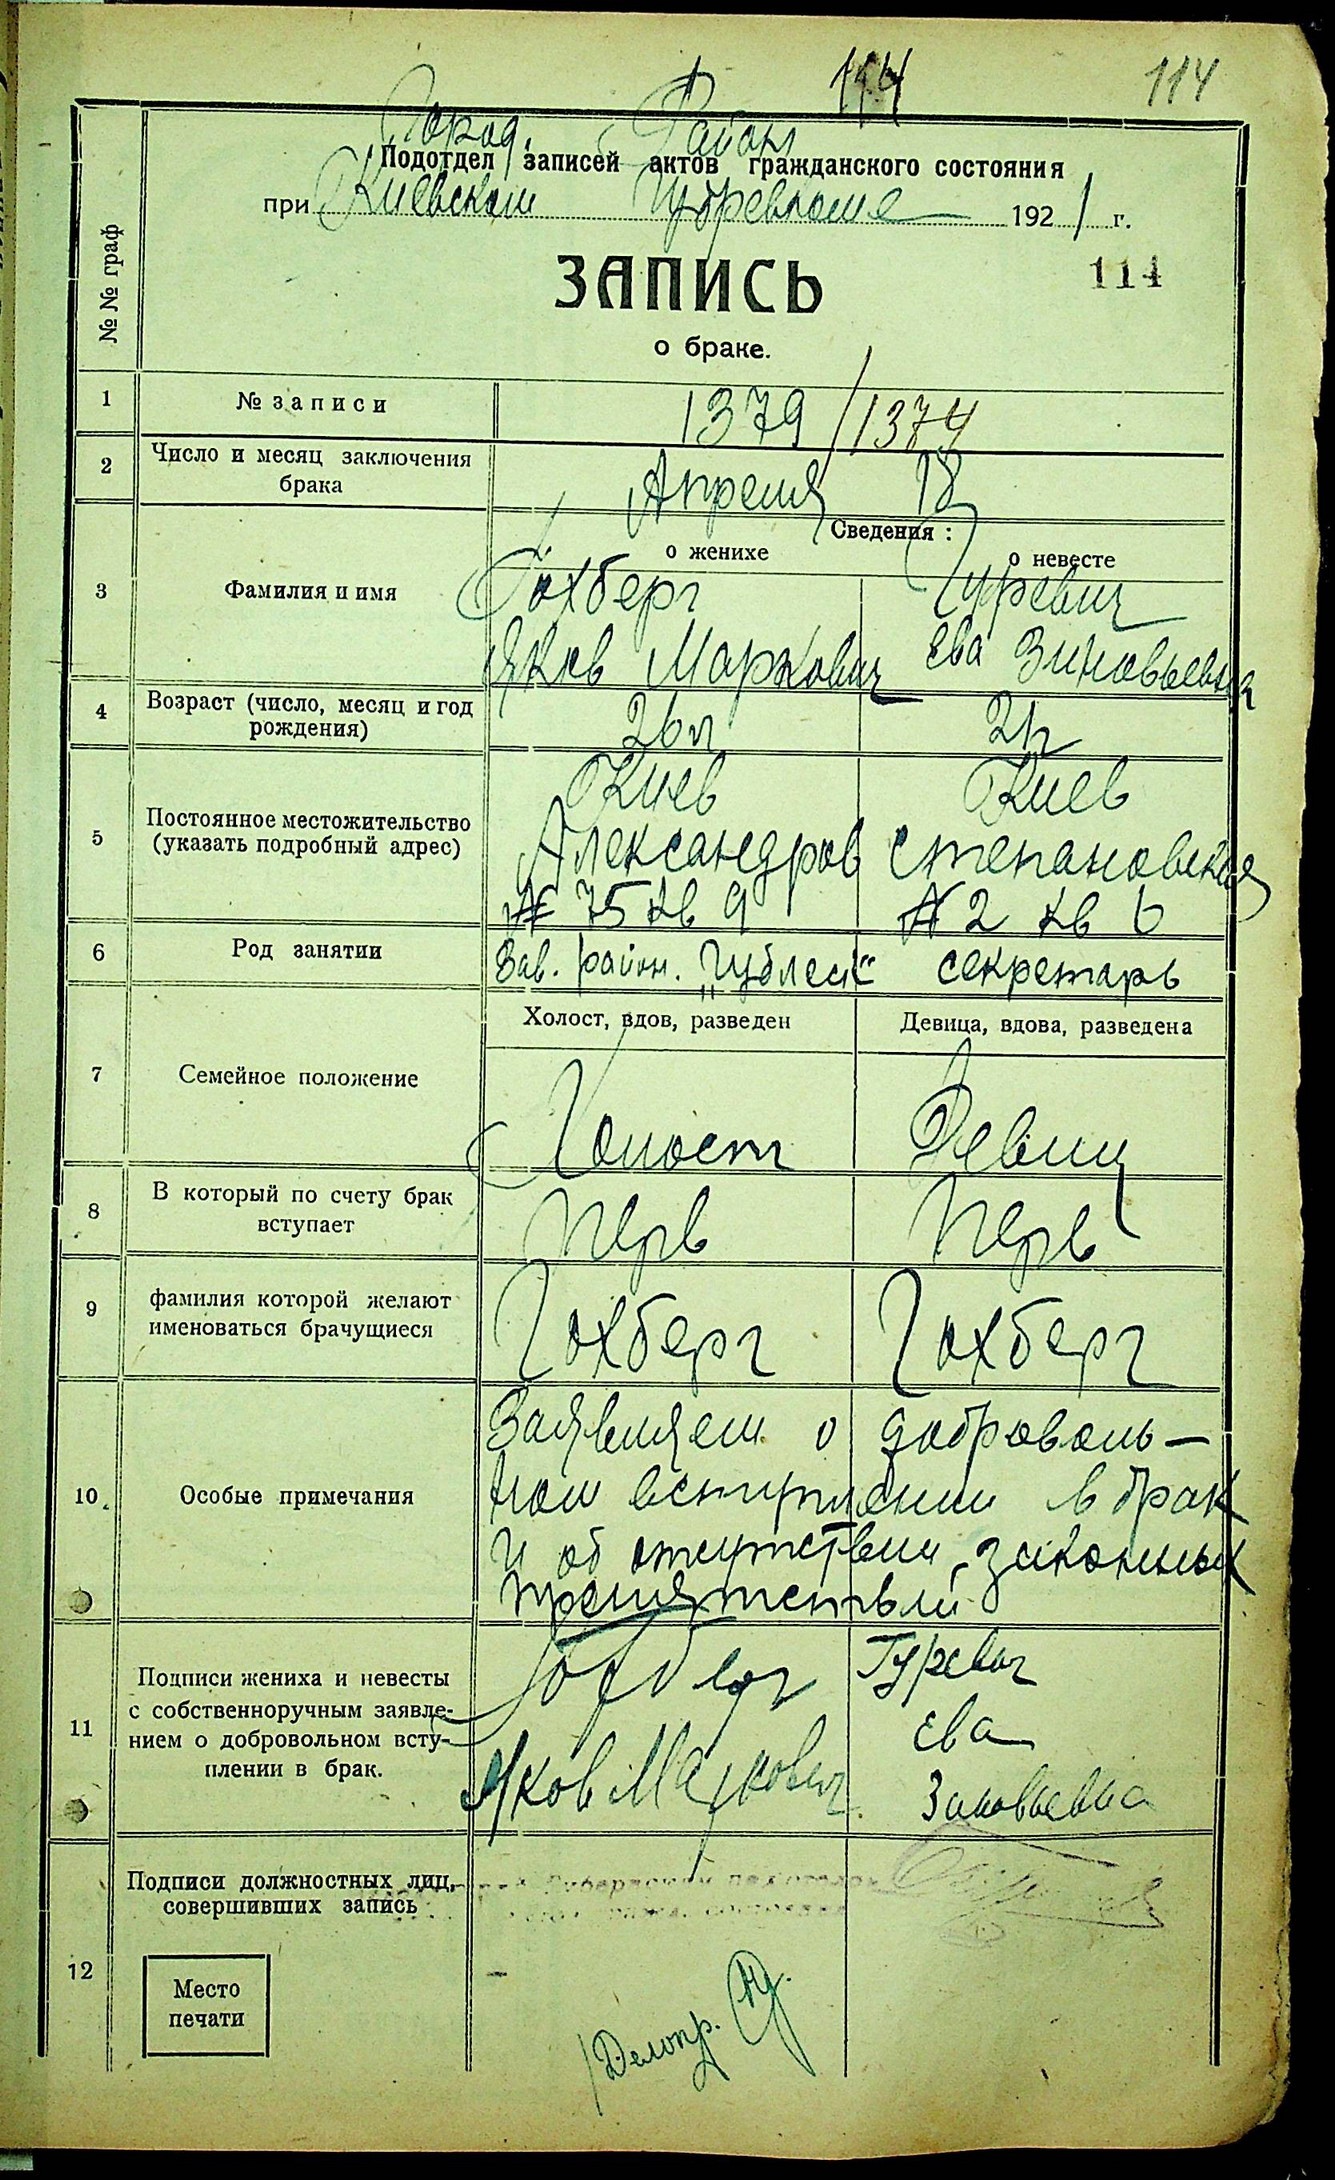 114
114
Город. Район
Подотдел записей актов гражданского состояния
при Киевском Губревкоме 1921 г.
114
ЗАПИСЬ
о браке.
№ № граф
1 № записи 1379 / 1374
2 Число и месяц заключения
брака
Апреля 18
Сведения:
о женихе о невесте
3 Фамилия и имя
Гохберг Гуревич
Яков Маркович Ева Зиновьевна
4 Возраст (число, месяц и год
рождения)
26 л 21 г
5 Постоянное местожительство
(указать подробный адрес)
Киев Киев
Александров Степановская
№ 75 кв 9 № 2 кв 6
6 Род занятии Зав. район. „Гублеск“ секретарь
Холост, вдов, разведен Девица, вдова, разведена
7 Семейное положение Холост Девиц
8 В который по счету брак
вступает
Перв Перв
9 фамилия которой желают
именоваться брачущиеся
Гохберг Гохберг
10. Особые примечания
Заявляем о доброволь-
ном вступлении в брак
и об отсутствии законных
препятствий
11 Подписи жениха и невесты
с собственноручным заявле-
нием о добровольном всту-
плении в брак.
Гохберг Гуревич
Яков Маркович Ева
Зиновьевна
12 Подписи должностных лиц,
совершивших запись
Место
печати
Делопр.